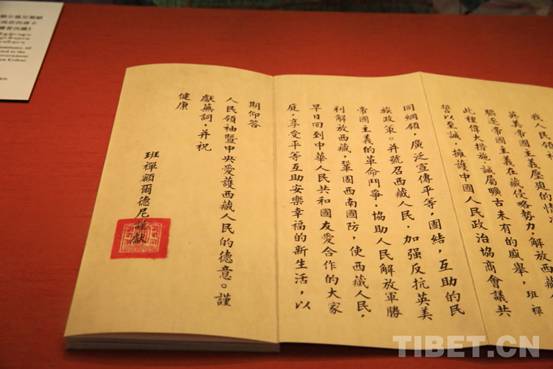 我人民領
英美帝國主義壓迫的情
驅逐帝國主義在藏侵略勢力，解放西
此種偉大措施，誠屬曠古未有的盛舉，班禪
誓以至誠，擁護中國人民政治協商會議共
同綱領，廣泛宣傳平等，團結，互助的民
族政策。并號召西藏人民，加强反抗英美
帝國主義的革命鬥爭，協助人民解放軍勝
利解放西藏，鞏固西南國防，使西藏人民，
早日回到中華人民共和國友愛合作的大家
庭，享受平等互助安樂幸福的新生活，以
期仰答
人民領袖暨中央愛護西藏人民的德意。謹
獻蕪詞，并祝
健康
班禪額爾德尼
TIBET.CN